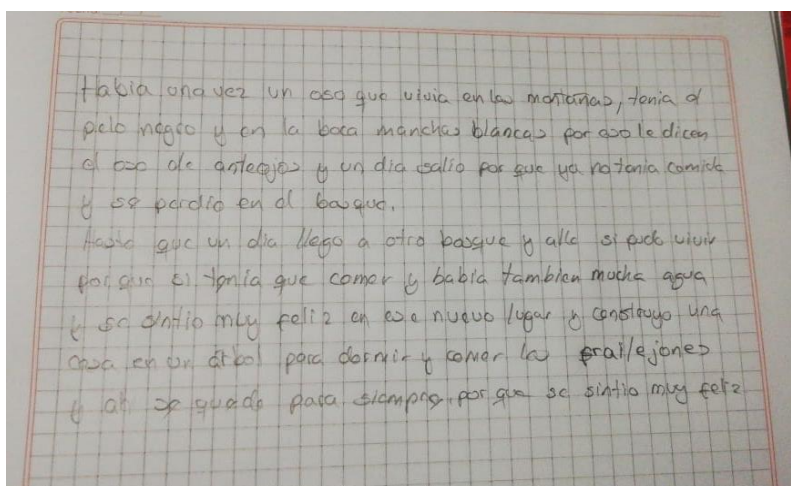 Habia una vez un oso que vivia en las montañas, tenia el
pelo negro y en la boca manchas blancas por eso le dicen
el oso de anteojos y un dia salio por que ya no tenia comida
y se perdio en el bosque.
Hasta que un dia llego a otro bosque y alla si pudo vivir
por que si tenia que comer y babia tambien mucha agua
y se sintio muy feliz en ese nuevo lugar y construyo una
casa en un árbol para dormir y comer los frailejones
y ahi se quedo para siempre, por que se sintio muy feliz